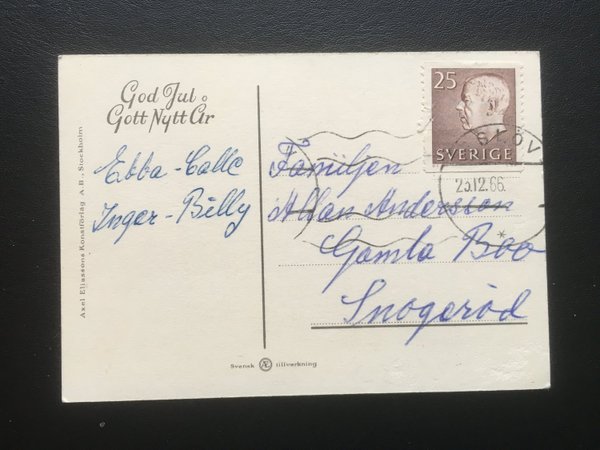 God Jul
Gott Nytt År
Ebba-Calle
Inger-Billy
Axel Eliassons Konstförlag A.B., Stockholm
25
SVERIGE
SLÖV
23.12.66.
*
Familjen
Allan Andersson
Gamla Boo
Snogeröd
Svensk Æ tillverkning